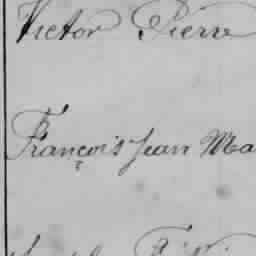 Victor Pierre
François Jean Ma